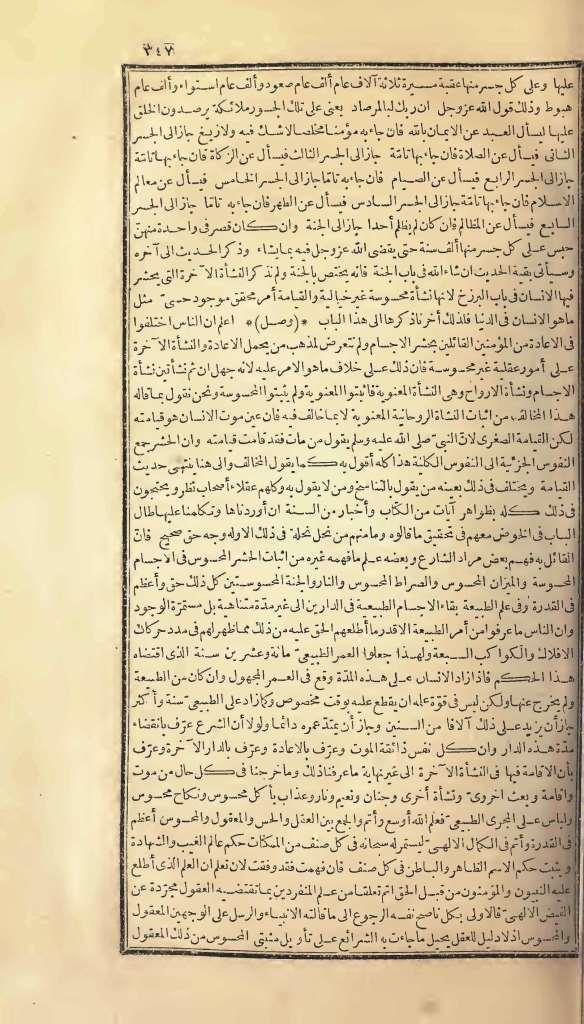 ٣٤٧
عليها وعلى كل جسر منها عقبة مسيرة ثلاثة آلاف عام ألف عام صعود وألف عام استواء وألف عام
هبوط وذلك قول الله عز وجل ان ربك لبالمرصاد يعنى على تلك الجسور ملائكة يرصدون الخلق
عليها ليسأل العبد عن الايمان بالله فان جاء به مؤمنا مخلصا لاشك فيه ولا زيغ جاز الى الجسر
الثانى فيسأل عن الصلاة فان جاء بها تامّة جاز الى الجسر الثالث فيسأل عن الزكاة فان جاء بها تامّة
جاز الى الجسر الرابع فيسأل عن الصيام فان جاء به تامّا جاز الى الجسر الخامس فيسأل عن معالم
الاسلام فان جاء بها تامّة جاز الى الجسر السادس فيسأل عن الطهر فان جاء به تامّا جاز الى الجسر
السابع فيسأل عن المظالم فان كان لم يظلم أحدا جاز الى الجنة وان كان قصر فى واحدة منهنّ
حبس على كل جسر منها ألف سنة حتى يقضى الله عز وجل فيه بما يشاء وذكر الحديث الى آخره
وسيأتى بقية الحديث ان شاء الله فى باب الجنة فانه يختص بالجنة ولم نذكر النشأة الآخرة التى يحشر
فيها الانسان فى باب البرزخ لانها نشأة محسوسة غير خيالية والقيامة أمر محقق موجود حسىّ مثل
ماهو الانسان فى الدنيا فلذلك أخرنا ذكرها الى هذا الباب *(وصل)* اعلم ان الناس اختلفوا
فى الاعادة من المؤمنين القائلين بحشر الاجسام ولم نتعرض لمذهب من يحمل الاعادة والنشأة الآخرة
على أمور عقلية غير محسوسة فان ذلك على خلاف ماهو الامر عليه لانه جهل ان ثم نشأتين نشأة
الاجسام ونشأة الارواح وهى النشأة المعنوية فاثبتوا المعنوية ولم يثبتوا المحسوسة ونحن نقول بما قاله
هذا المخالف من اثبات النشأة الروحانية المعنوية لا بما خالف فيه فان عين موت الانسان هو قيامته
لكن القيامة الصغرى لانّ النبىّ صلى الله عليه وسلم يقول من مات فقد قامت قيامته وان الحشر جمع
النفوس الجزئية الى النفوس الكلية هذا كله أقول به كما يقول المخالف والى هنا ينتهى حديث
القيامة ويختلف فى ذلك بعينه من يقول بالتناسخ ومن لا يقول به وكلهم عقلاء أصحاب نظر ويحتجون
فى ذلك كله بظواهر آيات من الكتاب وأخبار من السنة ان أوردناها وتكلمنا عليها طال
الباب فى الخوض معهم فى تحقيق ما قالوه وما منهم من نحل نحلة فى ذلك الا وله وجه حق صحيح فانّ
القائل به فهم بعض مراد الشارع وبعضه علم ما فهمه غيره من اثبات الحشر المحسوس فى الاجسام
المحسوسة والميزان المحسوس والصراط المحسوس والنار والجنة المحسوستين كل ذلك حق وأعظم
فى القدرة وفى علم الطبيعة بقاء الاجسام الطبيعية فى الدارين الى غير مدّة متناهية بل مستمرّة الوجود
وان الناس ما عرفوا من أمر الطبيعة الا قدر ما أطلعهم الحق عليه من ذلك مما ظهر لهم فى مدد حركات
الافلاك والكواكب السبعة ولهذا جعلوا العمر الطبيعىّ مائة وعشرين سنة الذى اقتضاه
هذا الحكم فاذا زاد الانسان على هذه المدّة وقع فى العمر المجهول وان كان من الطبيعة
ولم يخرج عنها ولكن ليس فى قوّة علمه ان يقطع عليه بوقت مخصوص وكما زاد على الطبيعىّ سنة وأكثر
جاز أن يزيد على ذلك آلافا من السنين وجاز أن يمتدّ عمره دائما ولولا أن الشرع عرّف بانقضاء
مدّة هذه الدار وان كل نفس ذائقة الموت وعرّف بالاعادة وعرّف بالدار الآخرة وعرّف
بأن الاقامة فيها فى النشأة الآخرة الى غير نهاية ما عرفنا ذلك وما خرجنا فى كل حال من موت
واقامة وبعث اخروىّ ونشأة أخرى وجنان ونعيم ونار وعذاب بأكل محسوس ونكاح محسوس
ولباس على المجرى الطبيعىّ فعلم الله أوسع وأتم والجمع بين العقل والحس والمعقول والمحسوس أعظم
فى القدرة وأتم فى الكمال الالهىّ ليستمر له سبحانه فى كل صنف من الممكنات حكم عالم الغيب والشهادة
ويثبت حكم الاسم الظاهر والباطن فى كل صنف فان فهمت فقد وفقت لان تعلم ان العلم الذى أطلع
عليه النبيون والمؤمنون من قبل الحق اتم تعلقا من علم المنفردين بما تقتضيه العقول مجرّدة عن
الفيض الالهىّ فالاولى بكل ناصح نفسه الرجوع الى ما قالته الانبياء والرسل على الوجهين المعقول
والمحسوس اذ لا دليل للعقل يحيل ما جاءت به الشرائع على تأويل مثبتى المحسوس من ذلك والمعقول